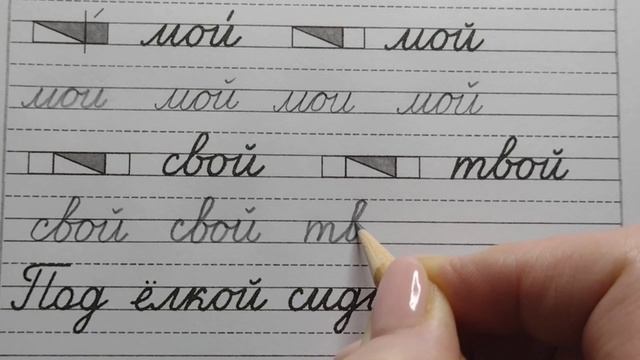 мои́ мой
мои мой мои мой
свой твой
свой свой тв
Под ёлкой